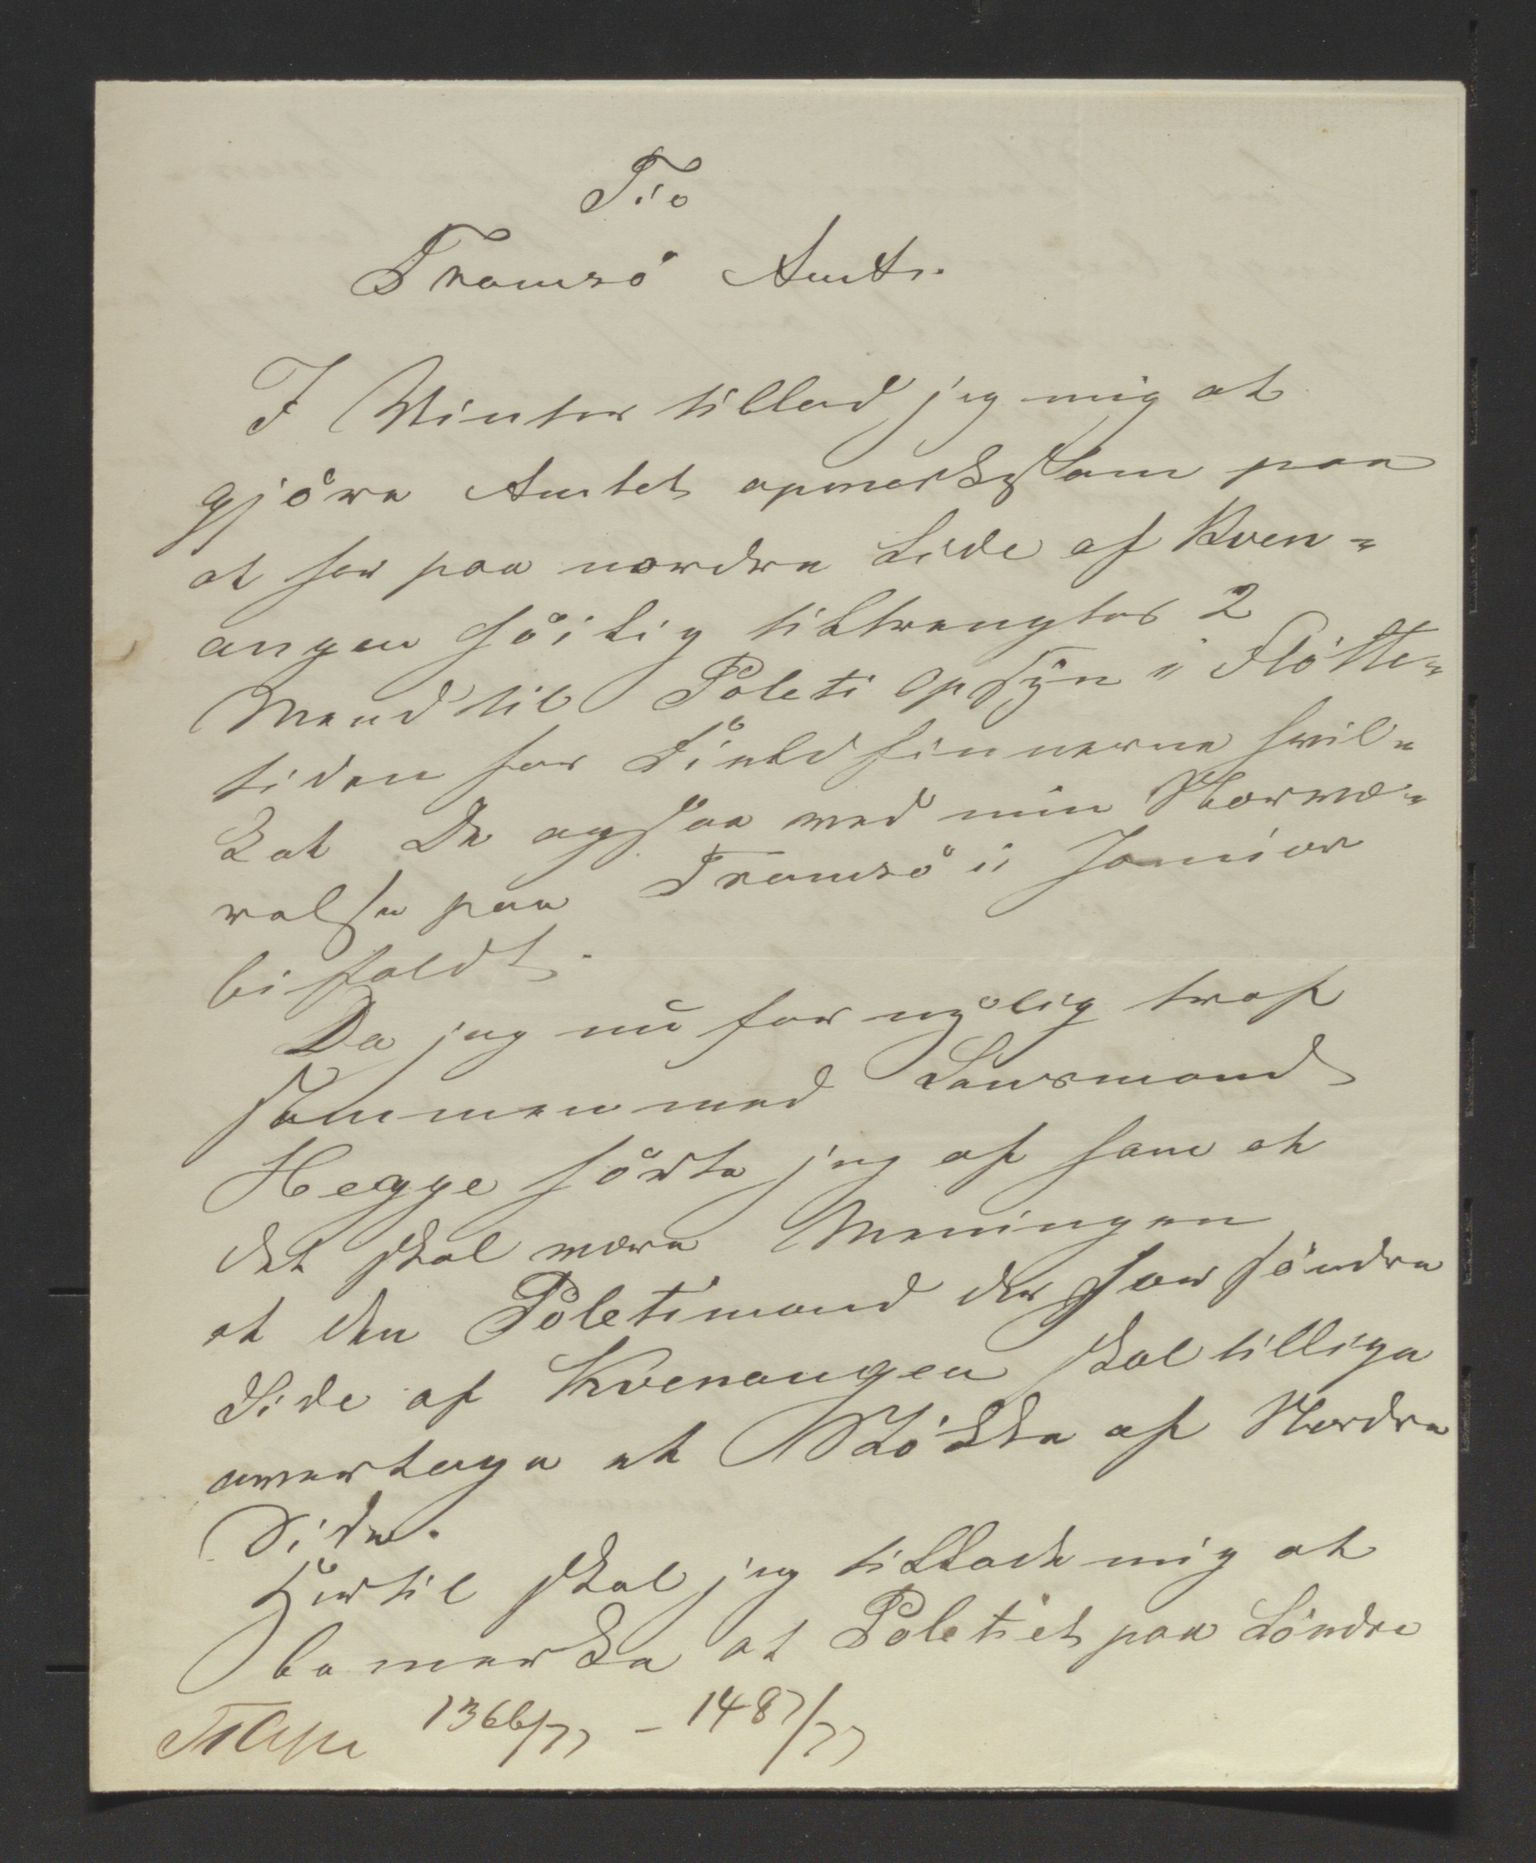 Til
Tromsö Amt.
I Vinter tillod jeg mig at
gjöre Amtet opmerksam paa
at her paa nordre Side af Kven-
angen höilig tiltrengtes 2
Mend til Poleti Opsyn i Flötte-
tiden for Fieldfinnerne hvil-
ket De ogsaa ved min Nærvæ-
relse paa Tromsö i Januar
bifaldt.
Da jeg nu for nylig traf
sammen med Lensmand
Hegge hörte jeg af ham at
det skal være Meningen
at den Poletimand der har söndre
Side af Kvenangen skal tillige
overtage et Stökke af Nordre
Side.
Hertil skal jeg tillade mig at
bemerke at Poletiet paa Söndre
1366/77 - 1487/77